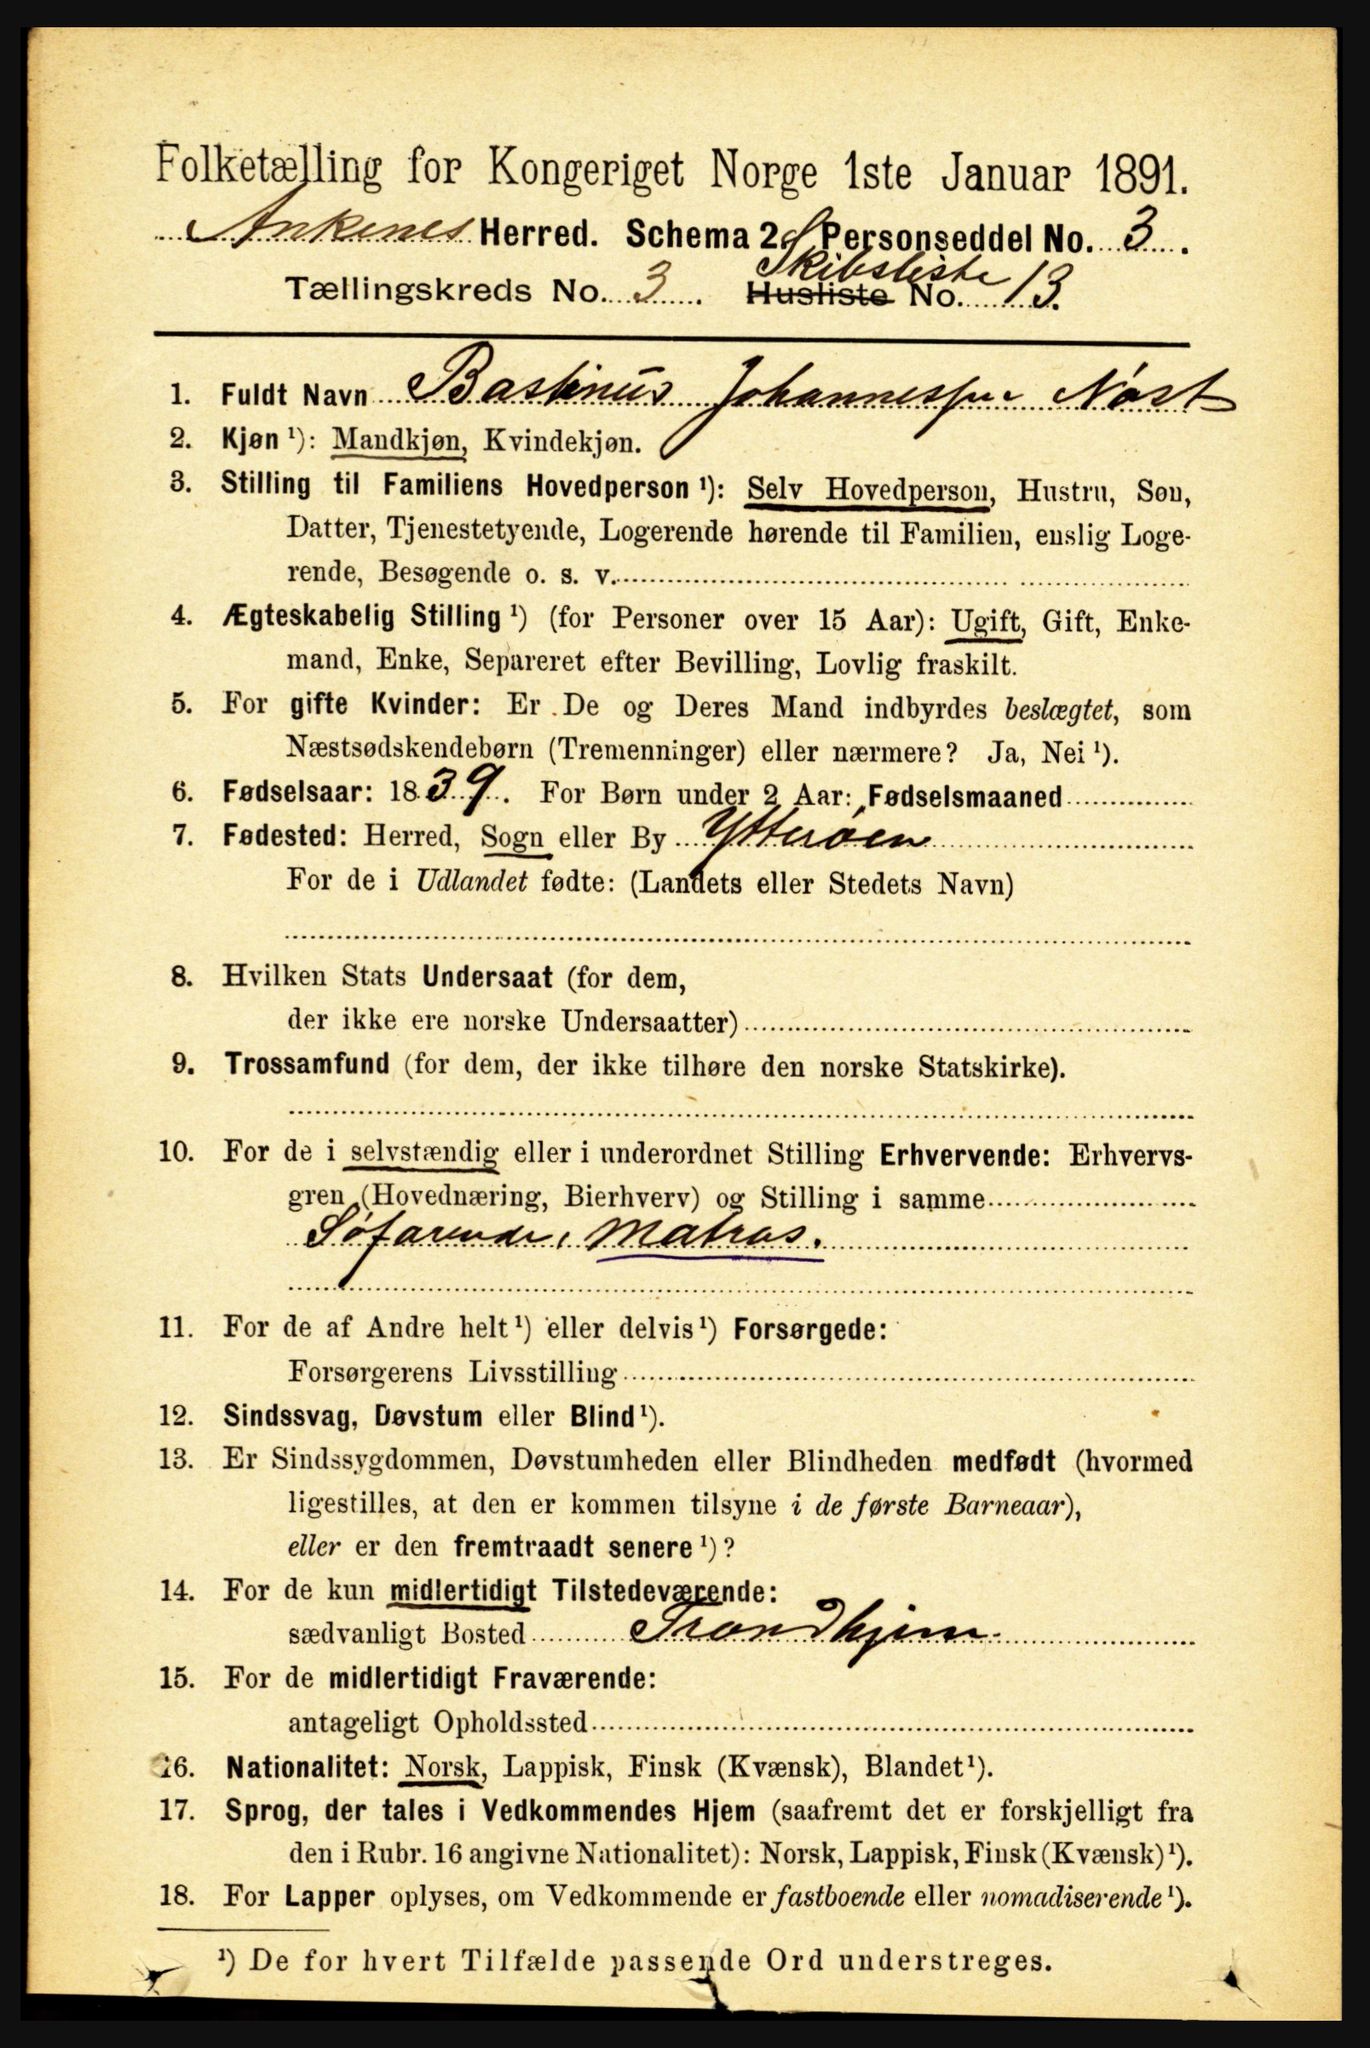 Folketælling for Kongeriget Norge 1ste Januar 1891.
Ankenes Herred. Schema 2. Personseddel No. 3.
Skibsliste
Tællingskreds No. 3. Husliste No. 13.
1. Fuldt Navn Bastinus Johannessen Nøst
2. Kjøn ¹): Mandkjøn, Kvindekjøn.
3. Stilling til Familiens Hovedperson ¹): Selv Hovedperson, Hustru, Søn,
Datter, Tjenestetyende, Logerende hørende til Familien, enslig Loge-
rende, Besøgende o. s. v.
4. Ægteskabelig Stilling ¹) (for Personer over 15 Aar): Ugift, Gift, Enke-
mand, Enke, Separeret efter Bevilling, Lovlig fraskilt.
5. For gifte Kvinder: Er De og Deres Mand indbyrdes beslægtet, som
Næstsødskendebørn (Tremenninger) eller nærmere? Ja, Nei ¹).
6. Fødselsaar: 1839. For Børn under 2 Aar: Fødselsmaaned
7. Fødested: Herred, Sogn eller By Ytterøen
For de i Udlandet fødte: (Landets eller Stedets Navn)
8. Hvilken Stats Undersaat (for dem,
der ikke ere norske Undersaatter)
9. Trossamfund (for dem, der ikke tilhøre den norske Statskirke).
10. For de i selvstændig eller i underordnet Stilling Erhvervende: Erhvervs-
gren (Hovednæring, Bierhverv) og Stilling i samme
Søfarende, Matros.
11. For de af Andre helt ¹) eller delvis ¹) Forsørgede:
Forsørgerens Livsstilling
12. Sindssvag, Døvstum eller Blind ¹).
13. Er Sindssygdommen, Døvstumheden eller Blindheden medfødt (hvormed
ligestilles, at den er kommen tilsyne i de første Barneaar),
eller er den fremtraadt senere ¹)?
14. For de kun midlertidigt Tilstedeværende:
sædvanligt Bosted Trondhjem
15. For de midlertidigt Fraværende:
antageligt Opholdssted
16. Nationalitet: Norsk, Lappisk, Finsk (Kvænsk), Blandet ¹).
17. Sprog, der tales i Vedkommendes Hjem (saafremt det er forskjelligt fra
den i Rubr. 16 angivne Nationalitet): Norsk, Lappisk, Finsk (Kvænsk) ¹).
18. For Lapper oplyses, om Vedkommende er fastboende eller nomadiserende ¹).
¹) De for hvert Tilfælde passende Ord understreges.